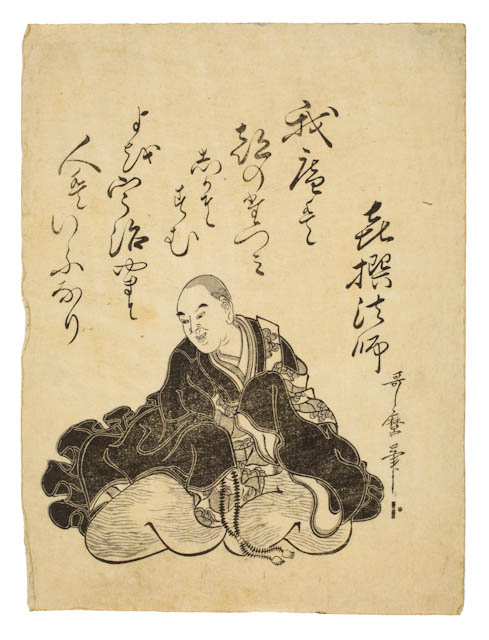 喜撰法師
我庵は
都のたつみ
しかそ
すむ
よを宇治やまと
人はいふなり
哥麿筆